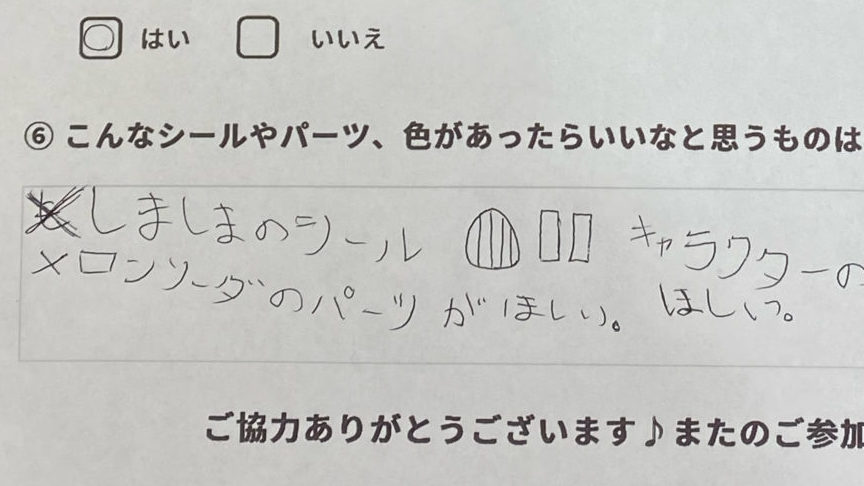 はい いいえ
⑥ こんなシールやパーツ、色があったらいいなと思うものは
しましまのシール キャラクターの
メロンソーダのパーツがほしい。 ほしい。
ご協力ありがとうございます♪またのご参加